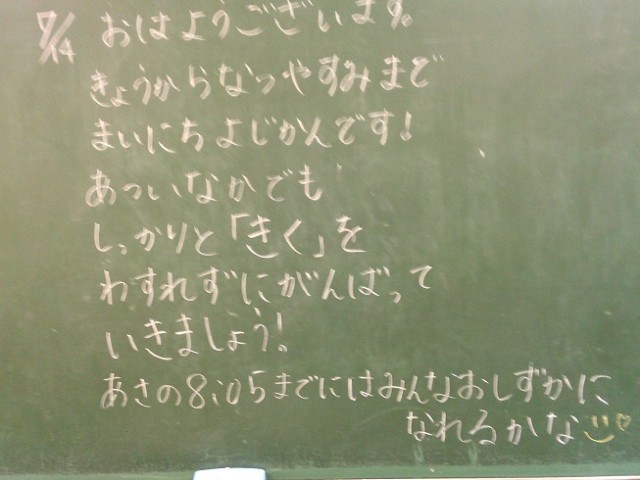 7/14 おはようございます。
きょうからなつやすみまで
まいにちよじかんです!
あついなかでも
しっかりと「きく」を
わすれずにがんばって
いきましょう!
あさの8:05までにはみんなおしずかに
なれるかな